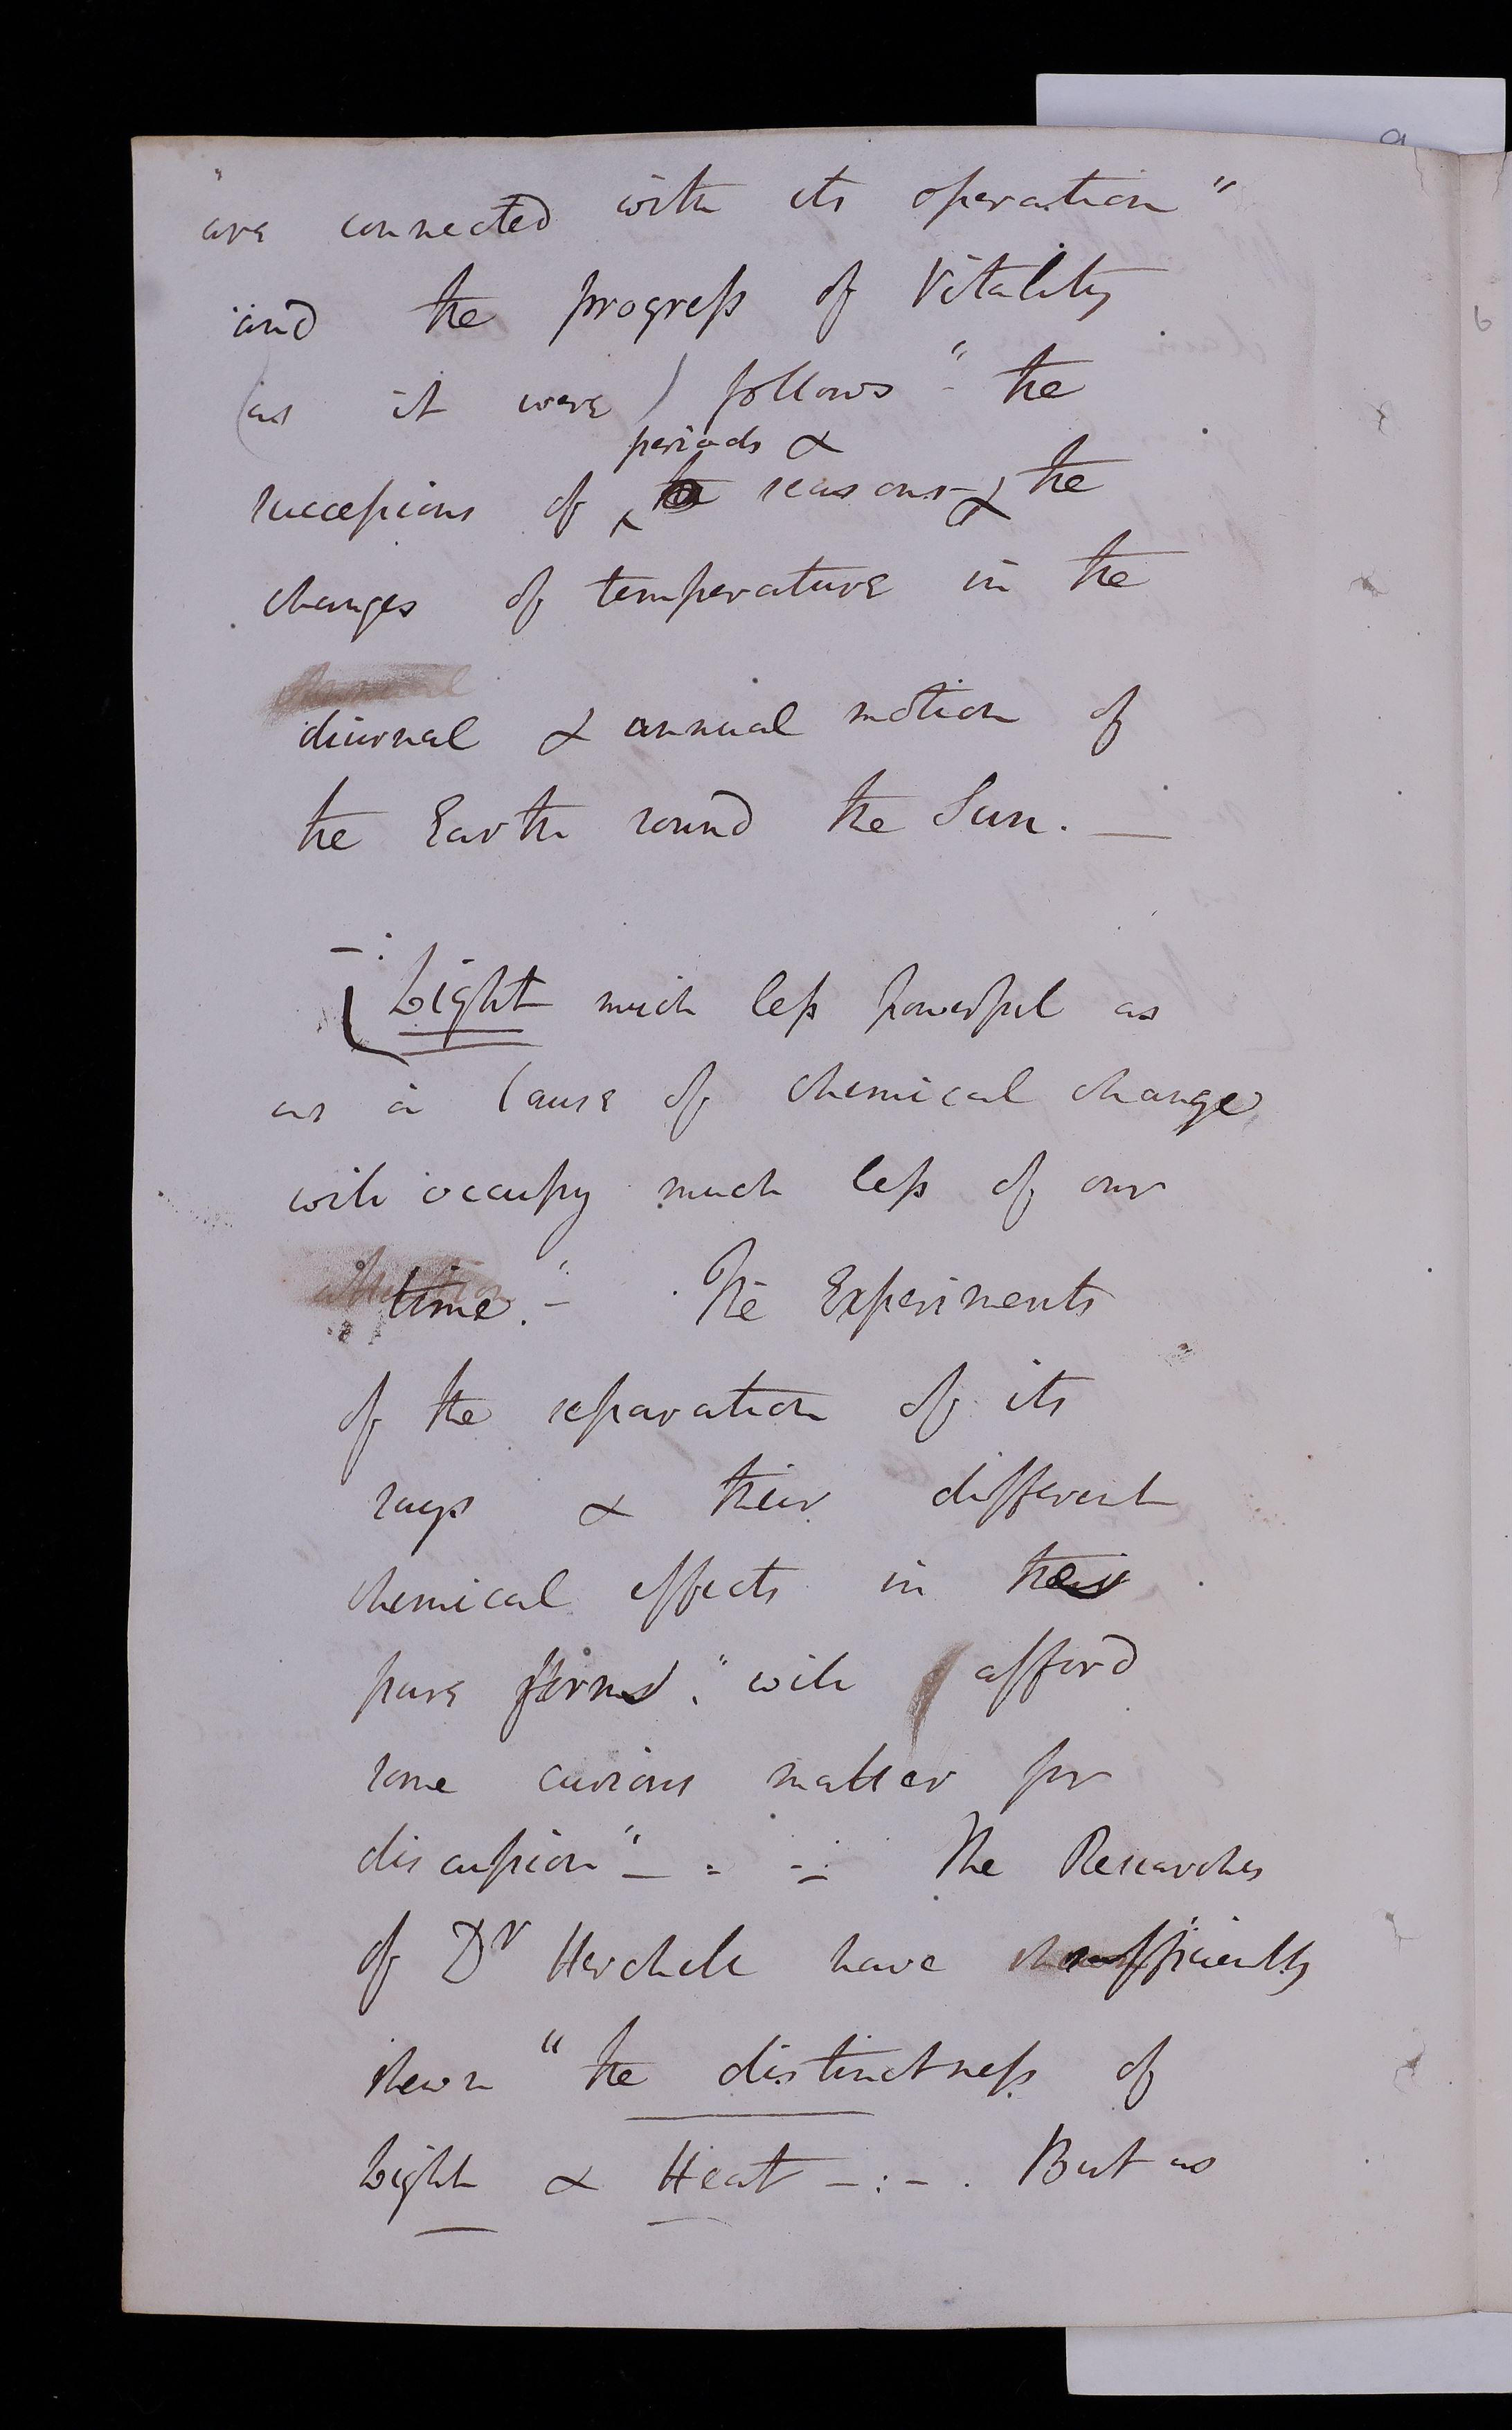 "are connected with its operation"
and the progress of Vitality
(as it were) follows "- the
periods &
successions of ^ the seasons - & the
changes of temperature in the
diurnal & annual motion of
the Earth round the Sun. —
-: Light much less powerful as
as a Cause of chemical change
will occupy much less of our
time." - The Experiments
of the separation of its
rays & their different
chemical effects in their
pure forms." will afford
some curious matter for
discussion" - = -:- The Researches
of Dr Herchell have sufficiently
shewn "the distinctness of
Light & Heat -:- . But as